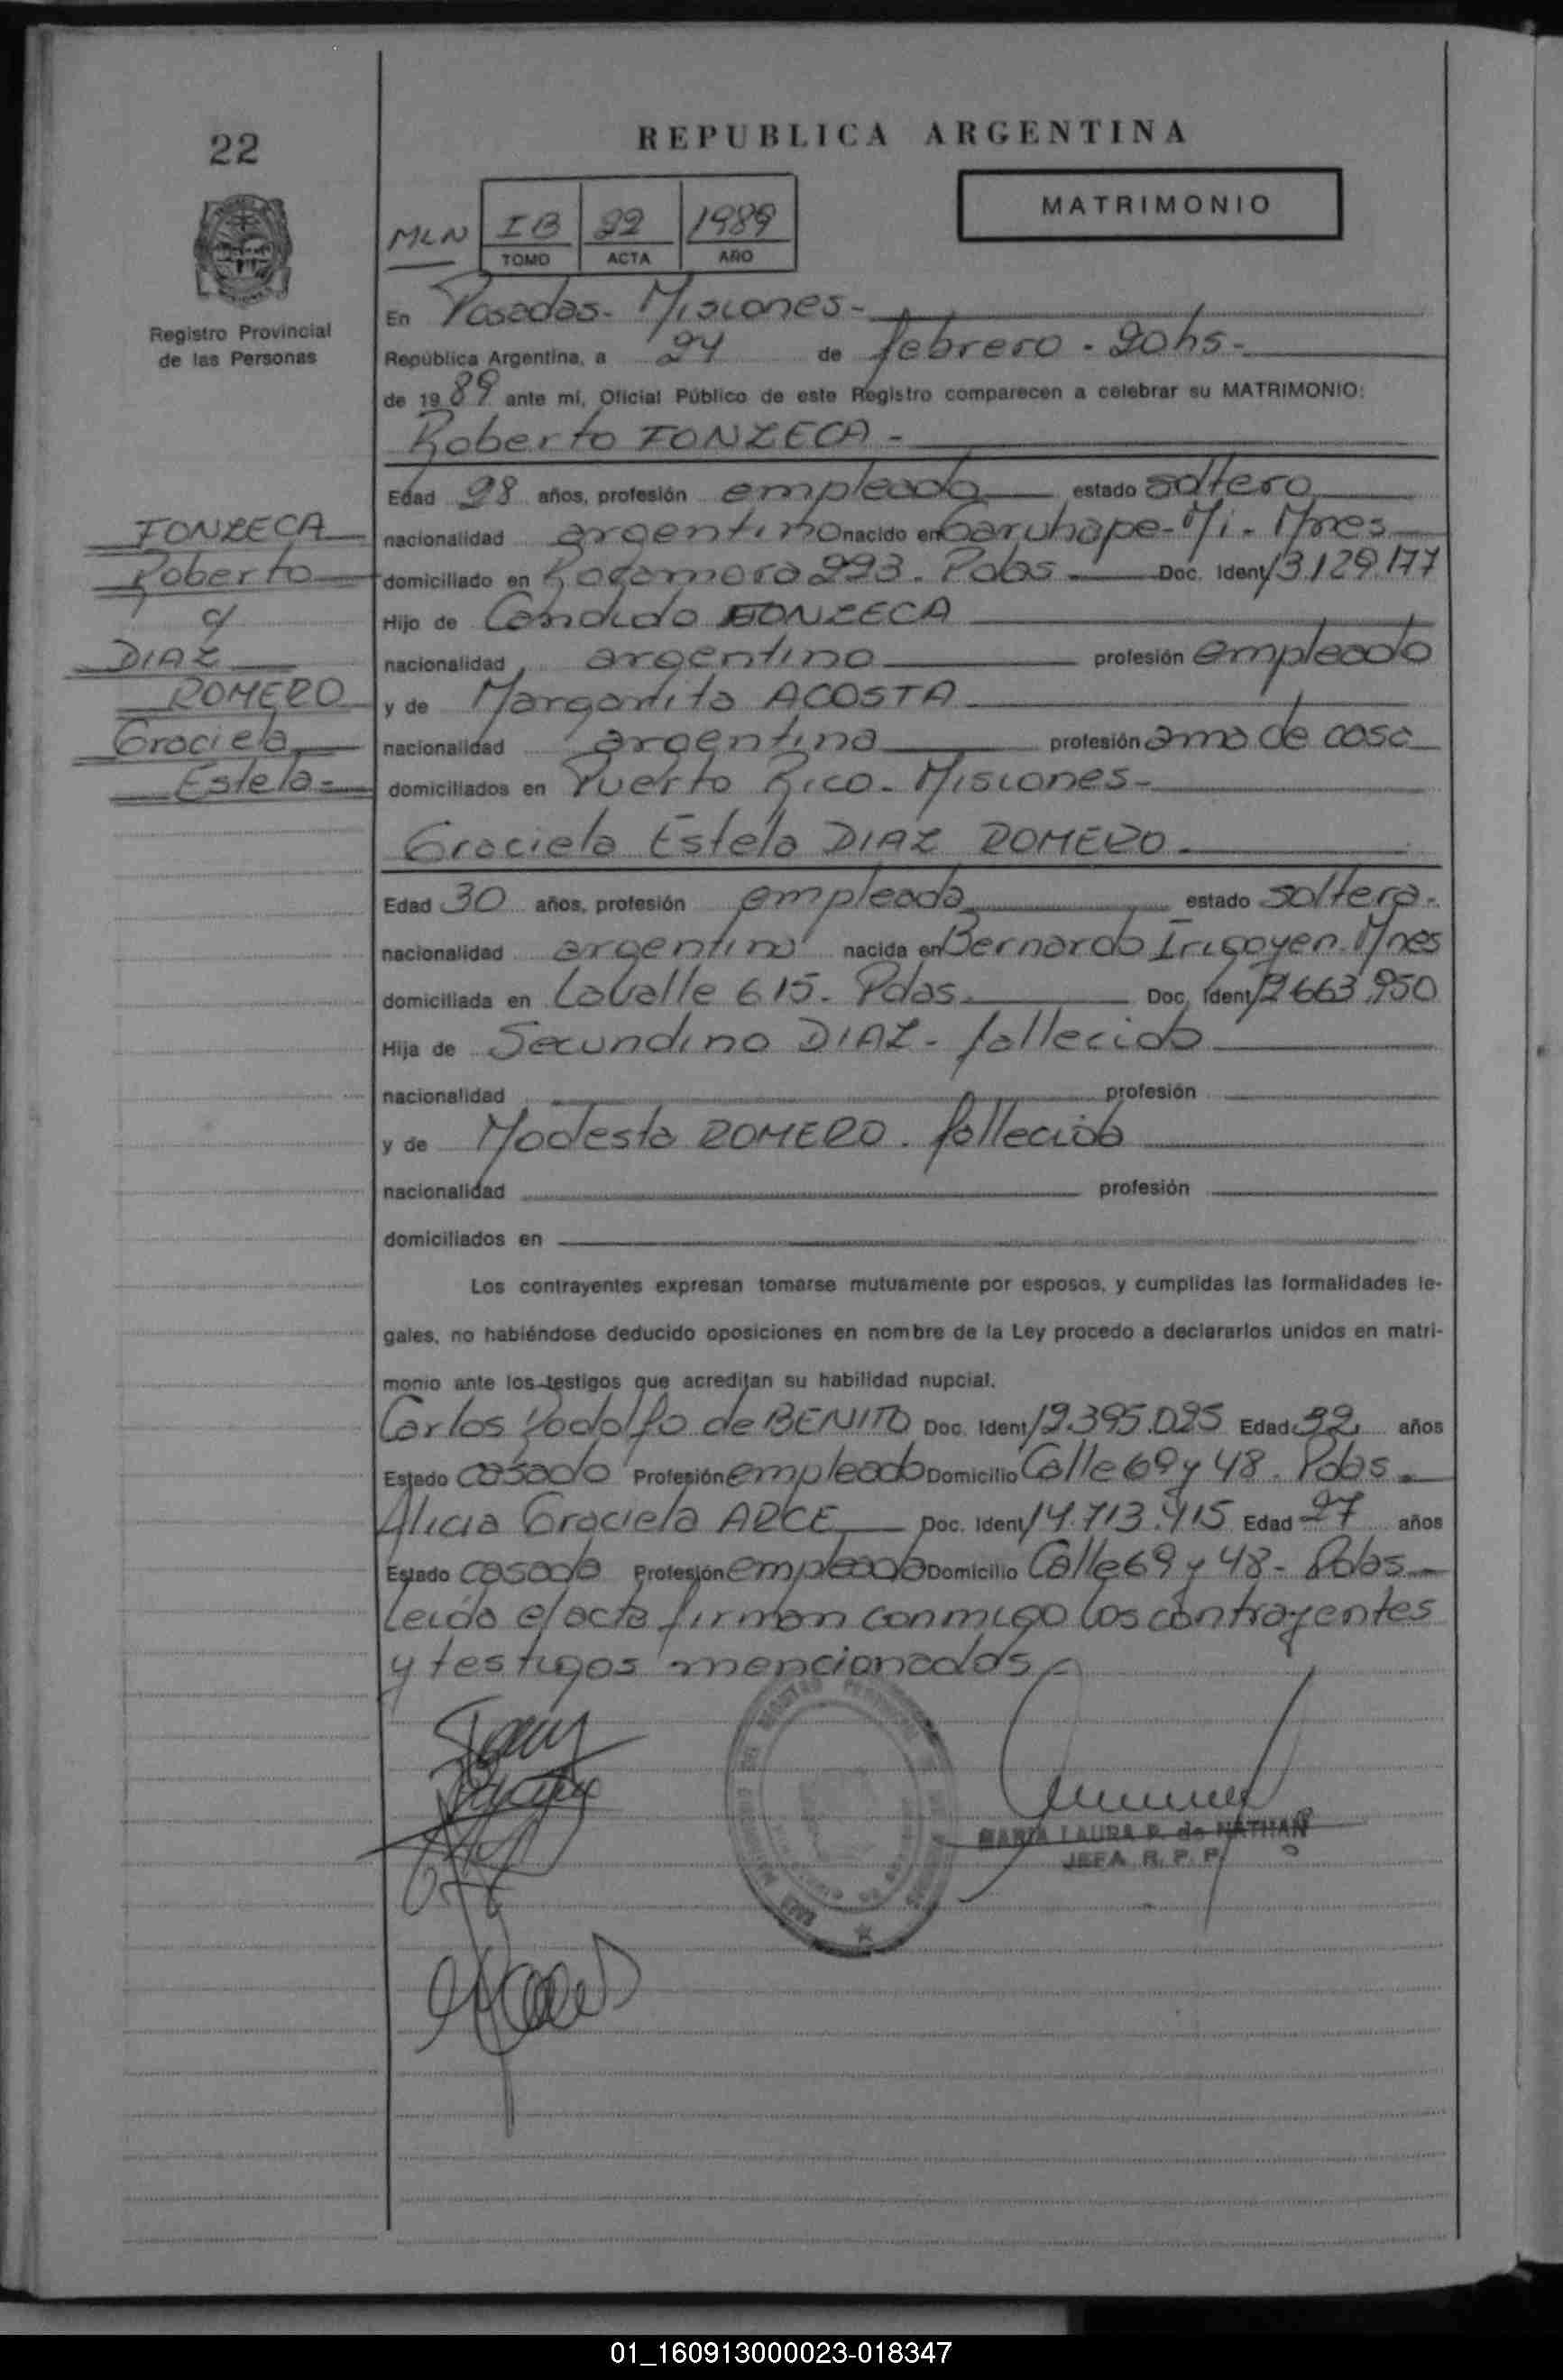 22
REPUBLICA ARGENTINA
MATRIMONIO
MLN IB 22 1989
TOMO ACTA AÑO
Registro Provincial
de las Personas
En Posadas - Misiones -
República Argentina, a 24 de febrero - 20hs -
de 1989 ante mí, Oficial Público de este Registro comparecen a celebrar su MATRIMONIO:
Roberto FONZECA -
Edad 28 años, profesión empleado estado soltero
nacionalidad argentino nacido en Garuhape - Mi - Mnes
domiciliado en Rocamora 223. Pdas Doc. Ident 13.129.177
Hijo de Candido FONZECA
nacionalidad argentino profesión empleado
y de Margarita ACOSTA
nacionalidad argentina profesión ama de casa
domiciliados en Puerto Rico - Misiones -
FONZECA
Roberto
c/
DIAZ
ROMERO
Graciela
Estela -
Graciela Estela DIAZ ROMERO -
Edad 30 años, profesión empleada estado soltera -
nacionalidad argentina nacida en Bernardo Irigoyen - Mnes
domiciliada en Lavalle 615 - Pdas Doc. Ident 12.663.950
Hija de Secundino DIAZ - fallecido
nacionalidad profesión
y de Modesta ROMERO - fallecida
nacionalidad profesión
domiciliados en
Los contrayentes expresan tomarse mutuamente por esposos, y cumplidas las formalidades le-
gales, no habiéndose deducido oposiciones en nombre de la Ley procedo a declararlos unidos en matri-
monio ante los testigos que acreditan su habilidad nupcial.
Carlos Rodolfo de BENITO Doc. Ident 12.395.025 Edad 32 años
Estado casado Profesión empleado Domicilio Calle 69 y 48 - Pdas -
Alicia Graciela ARCE Doc. Ident 14.713.415 Edad 27 años
Estado casada Profesión empleada Domicilio Calle 69 y 48 - Pdas -
Leida el acta firman conmigo los contrayentes
y testigos mencionados -
MARIA LAURA R. de NATHAN
JEFA R. P. P.
01_160913000023-018347